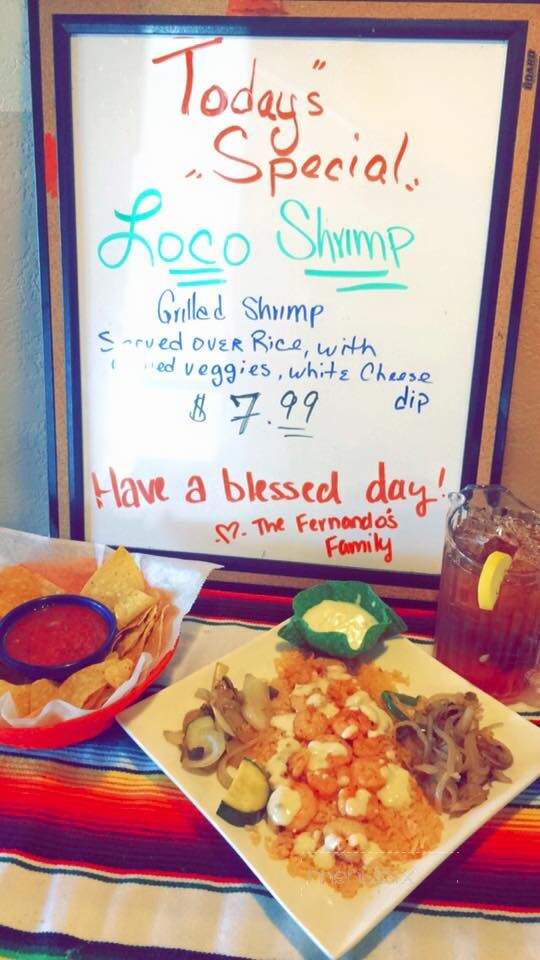 Today's
Special
Loco Shrimp
Grilled Shrimp
Served over Rice, with
veggies, white Cheese
dip
$ 7.99
Have a blessed day!
The Fernando's
Family
BOARD